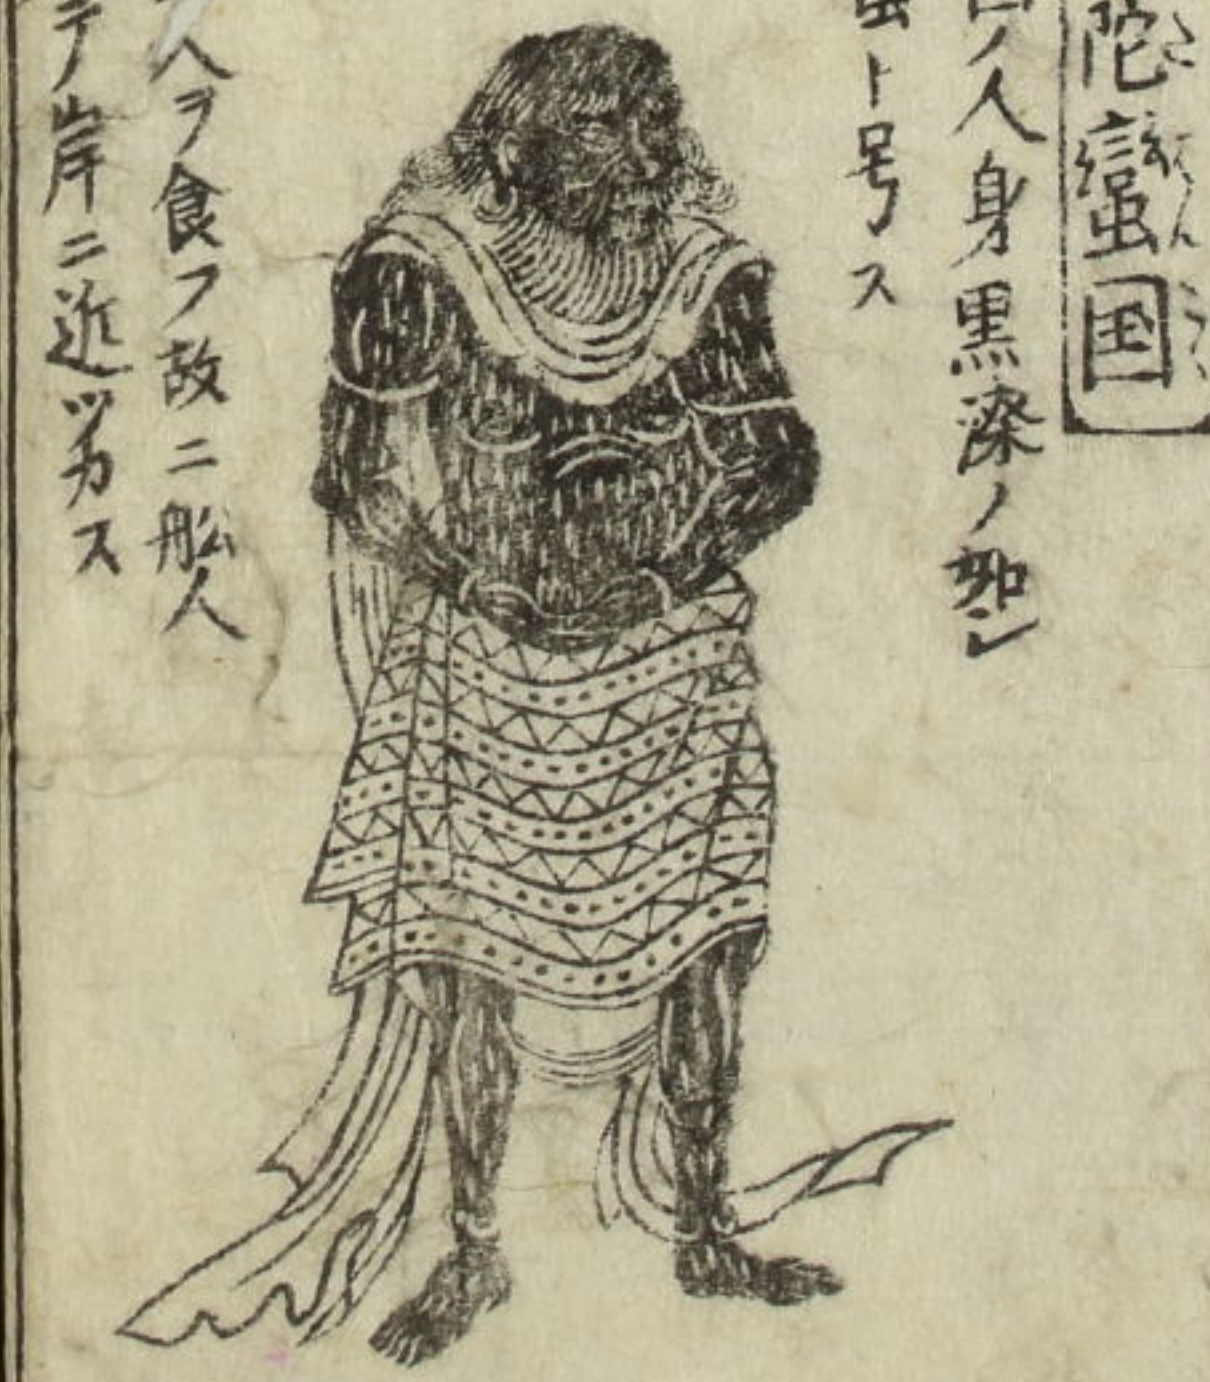 陀蛮国
ノ人身黒漆ノ如シ
ト号ス
人ヲ食フ故ニ船人
ノ岸ニ近ツカス